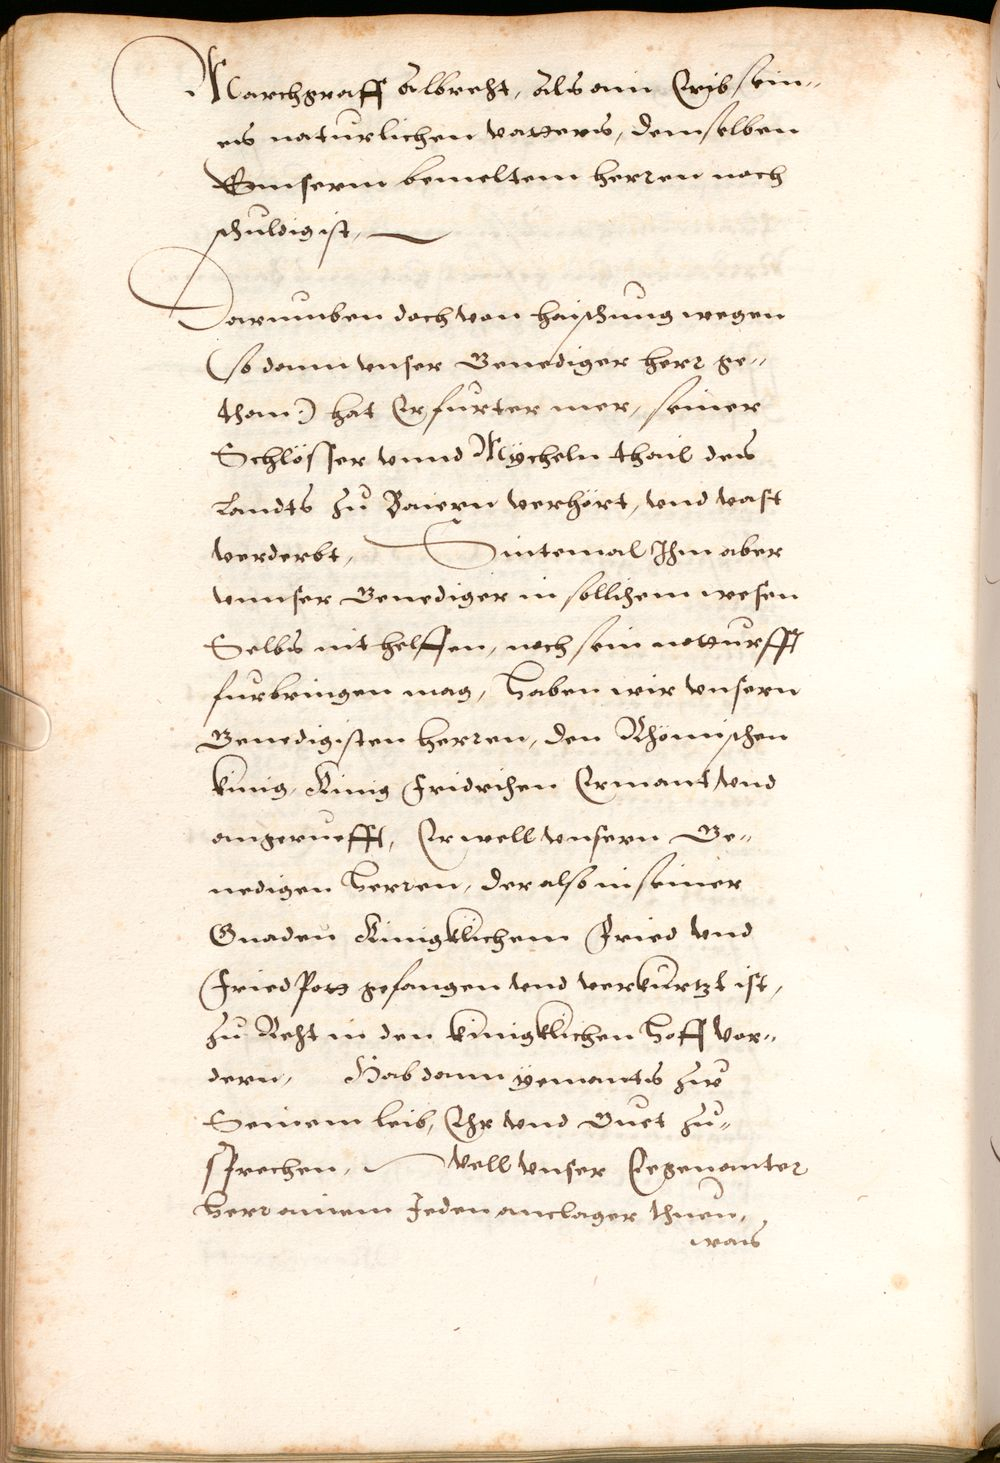 Marchgraff Albrecht, als ain Erib sein„
es naturlichen vatters, demselben
Vnnserm bemeltem herren noch
schuldig ist,
Darumben doch von haischung wegen
(so dann vnser Genediger herr ge„
than:) hat Er furter mer, seiner
Schlösser vnnd Mÿcheln thail des
Landts zu Baiern verhört, vnd vast
verderbt, Sintemal Ihm aber
vnnser Genediger in sollichem wesen
Selbs nit helffen, noch sein notturfft
furbringen mag, haben wir vnsern
Genedigisten herren, den Rhömischen
künig, König Fridrichen Ermant, vnd
angeruefft, Er well vnsern Ge„
nedigen herren, der also in seiner
Gnaden Künigklichem Fried vnd
Fried Pott gefangen vnd verkürtzt ist,
zu Recht in den künigklichen hoff vor„
dern, Hab dann yemants zw
Seinem leib, Ehr vnd Guet zu„
sprechen, Well vnser Egenanter
herr ainem Jeden anclager thuen,
wais